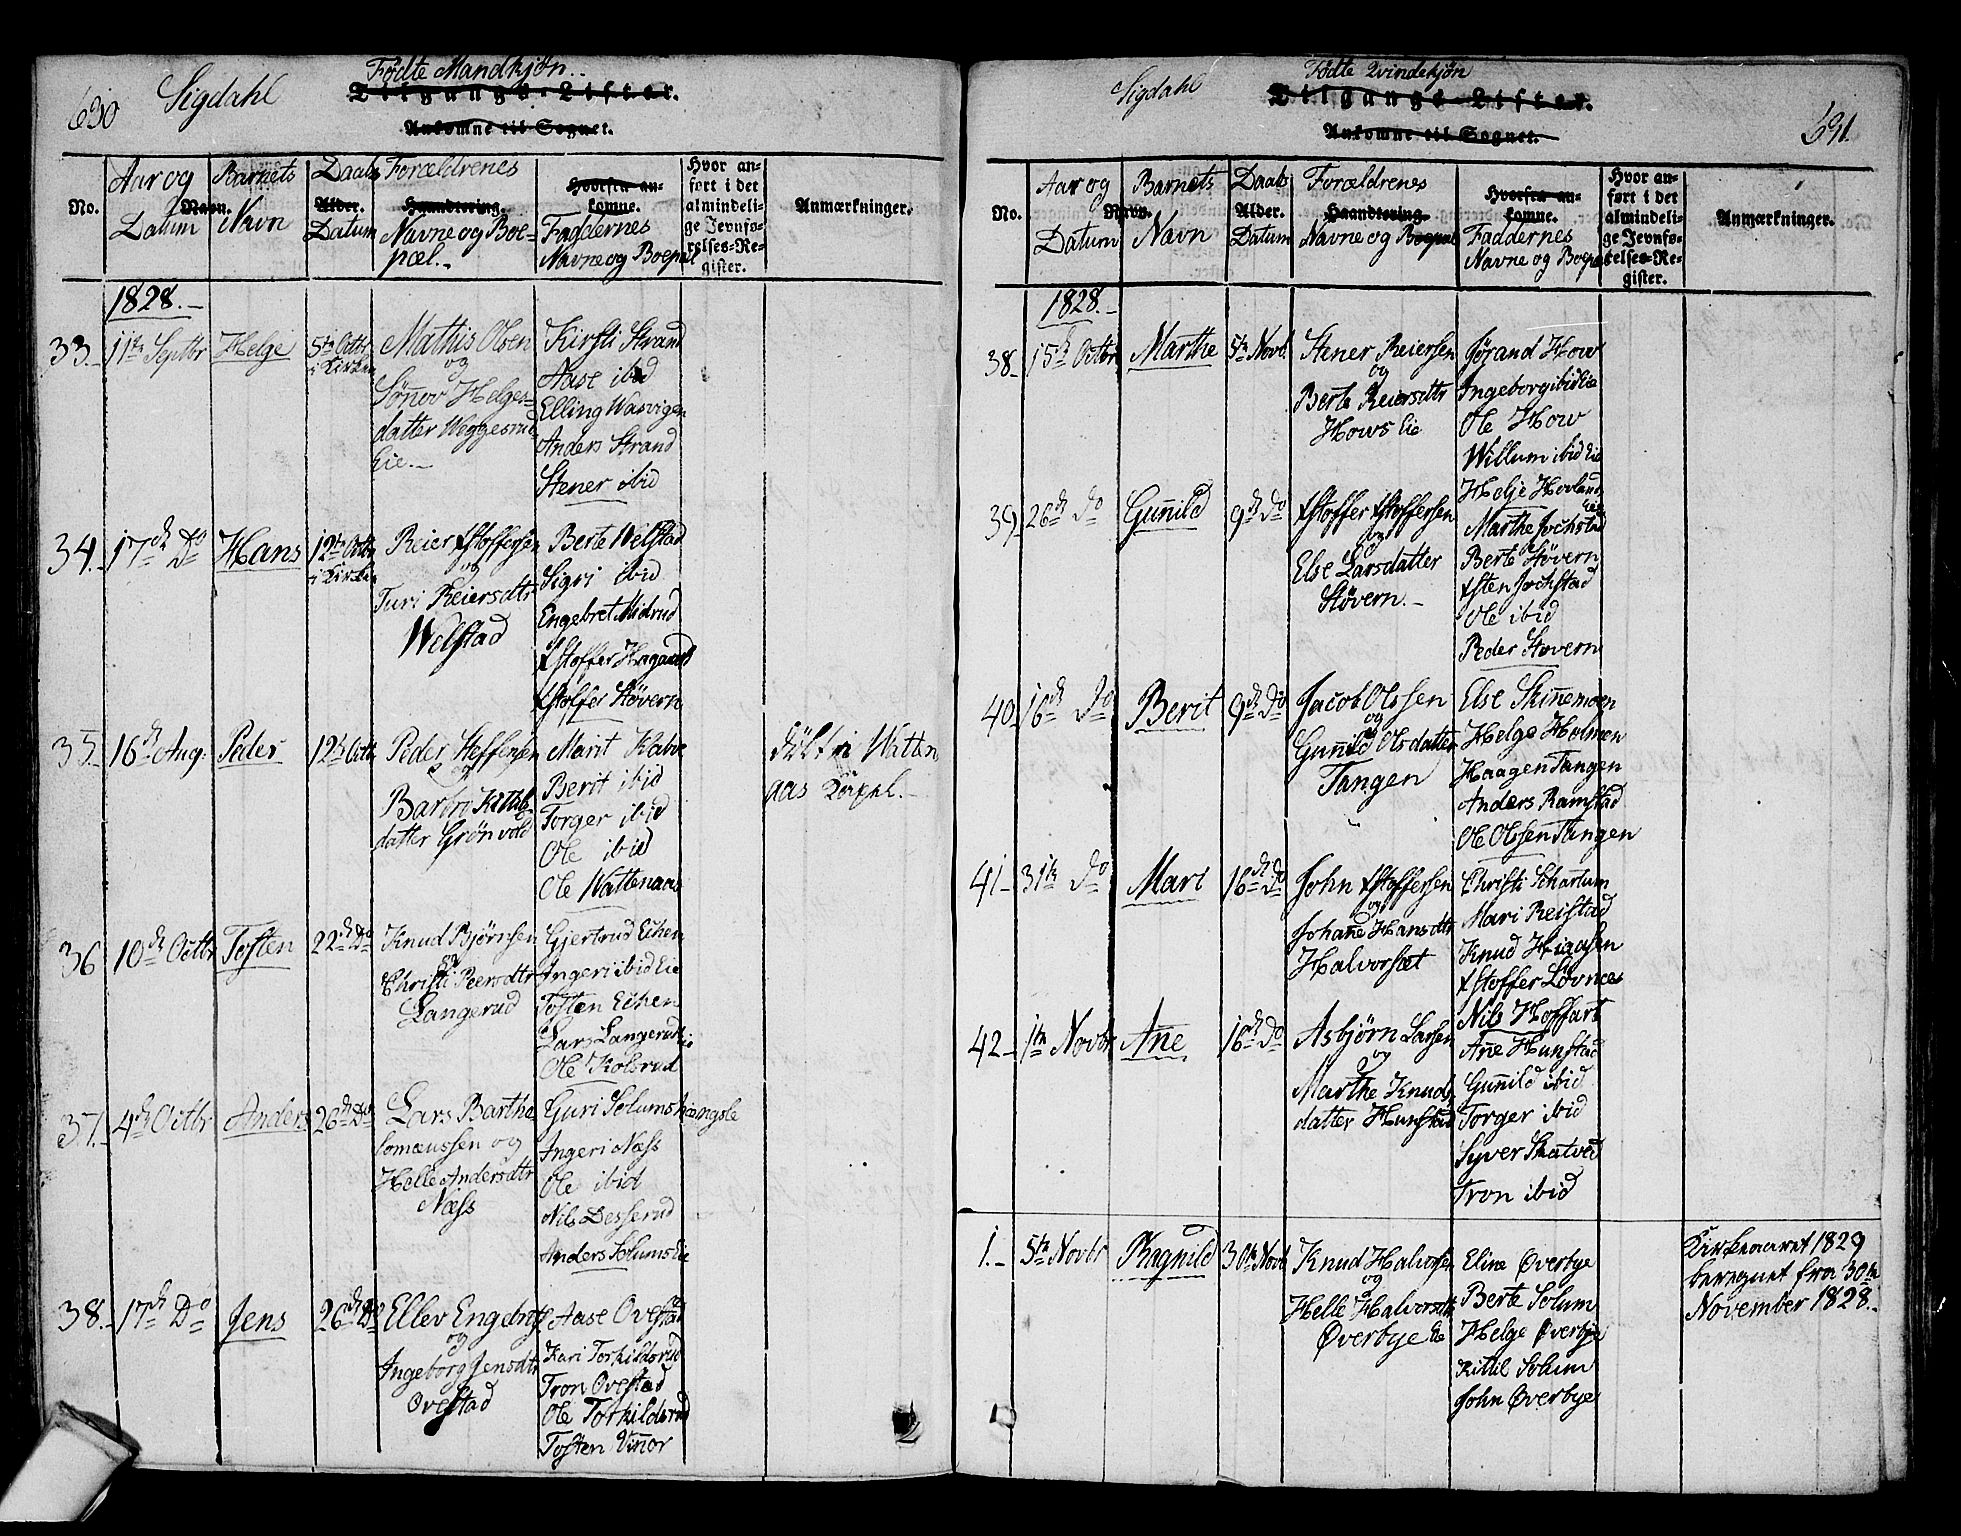 630 Sigdahl Fødte Mandkjøn
Tilgangs-Lister.
Ankomne til Sognet.
No. Aar og Datum Barnets Navn Daabs Datum Forældrenes Navne og Boepæl. Faddernes Navne og Boepæl Hvor anført i det almindelige Jevnførelses-Register. Anmærkninger.
1828.
33. 11te Septbr Helge 5te Octbr i Kirken
Mathis Olsen
og
Sønov Helges-
datter Weggesrud
Eie.
Kirsti Strand
Aase ibid
Elling Wasvigen
Anders Strand
Stener ibid
34. 17de Do Hans 12te Octbr i Kirken
Reier Xstoffersen
og
Turi Reiersdtr
Welstad
Berte Welstad
Sigri ibid
Engebret Midrud
Xstoffer Hagaard
Xstoffer Støvern
35. 16de Aug: Peder 12te Octbr
Peder Steffensen
og
Barbri Kittils-
datter Grönvold
Marit Kabve
Berit ibid
Torger ibid
Ole ibid
Ole Wattenaas
döbt i Watten
aas Kapel.
36 10de Octbr Tosten 22de Do
Knud Bjørnsen
og
Christi Peersdtr
Langerud
Gjertrud Eken
Ingeri ibid Eie
Tosten Eken
Lars Langerud Eie
Ole Kolsrud
37. 4de Octbr Anders 26de Do
Lars Bartho
lomæussen og
Helle Andersdtr
Næss
Guri Solumshængsle
Ingeri Næss
Ole ibid
Nils Desserud
Anders Solums Eie
38. 17de Do Jens 26de Do
Ellev Engebretss
og
Ingeborg Jensdtr
Ovestad
Aase Ovestad
Kari Torkildsrud
Tron Ovestad
Ole Torkildsrud
Tosten Vinor
Sigdahl Fødte Qvindekjøn 631.
Tilgangs-Lister.
Ankomne til Sognet.
No. Aar og Datum Barnets Navn Daabs Datum Forældrenes Navne og Boepæl Faddernes Navne og Boepæl Hvor anført i det almindelige Jevnførelses-Register. Anmærkninger.
1828.
38. 15de Octbr Marthe 5te Novb.
Stener Reiersen
og
Berte Reiersdtr
Hows Eie
Jørand How
Ingeborg ibid Eie
Ole How
Willum ibid Eie
Helje Hovland
39. 26de Do Gunild 9de Do
Xstoffer Xstoffersen
og
Else Larsdatter
Støvern.
Marthe Jochstad
Berte Støvern
Xsten Jochstad
Ole ibid
Peder Støvern
40. 16de Do Berit 9de Do
Jacob Olssen
og
Gunild Olsdatter
Tangen
Else Skinnemoen
Helge Holmen
Haagen Tangen
Anders Ramstad
Ole Olssen Tangen
41. 31te Do Mari 16de Do
John Xstoffersen
og
Johanne Hansdtr
Halvorsæt
Christi Schartum
Mari Reistad
Knud Higasen
Xstoffer Løvnes
Nils Hoffart
42. 1te Novbr Anne 16de Do
Asbjørn Larsen
og
Marthe Knuds
datter Hunstad
Anne Hunstad
Gunild ibid
Torger ibid
Syver Skatved
Tron ibid
1. 5te Novbr Ragnild 30te Novb
Knud Halvorsen
og
Helle Halvorsdtr
Øverbye Eie
Eline Øverbye
Berte Solum
Helge Øverbye
Kittil Solum
John Øverbye
Kirkeaaret 1829
beregnet fra 30te
November 1828.